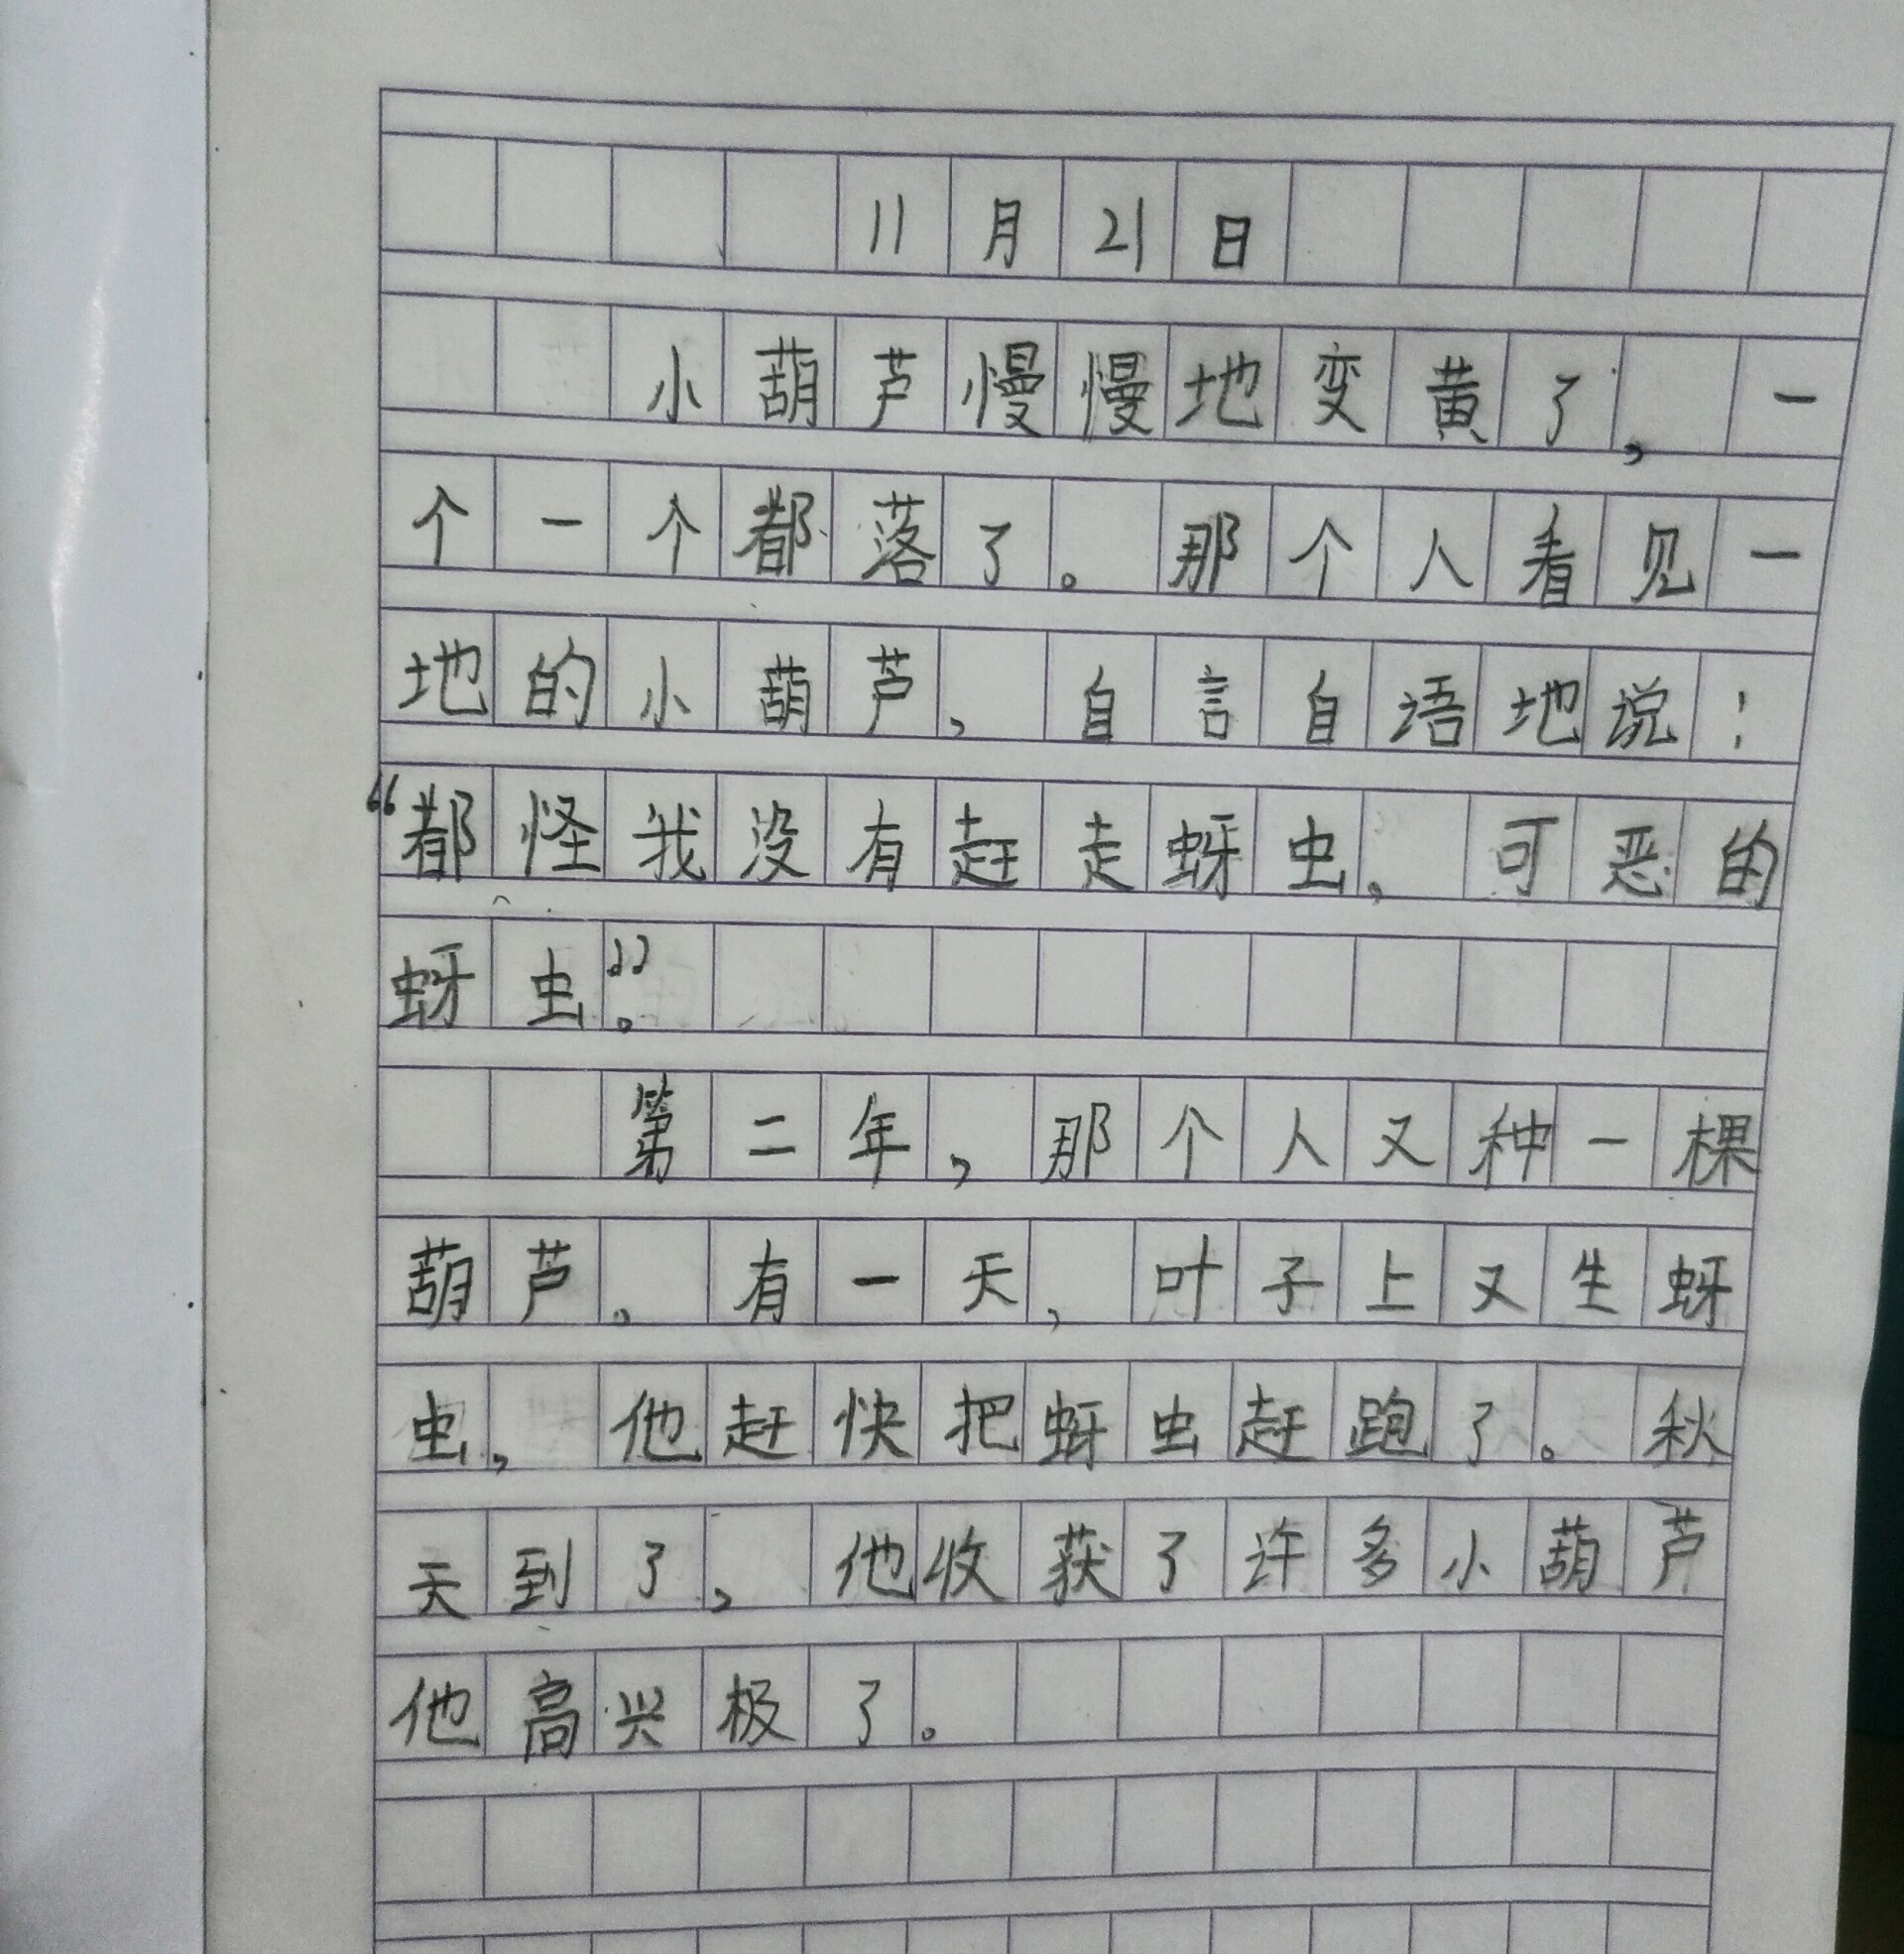 11月21日
小葫芦慢慢地变黄了，一
个一个都落了。那个人看见一
地的小葫芦，自言自语地说：
“都怪我没有赶走蚜虫，可恶的
蚜虫。”
第二年，那个人又种一棵
葫芦。有一天，叶子上又生蚜
虫，他赶快把蚜虫赶跑了。秋
天到了，他收获了许多小葫芦
他高兴极了。